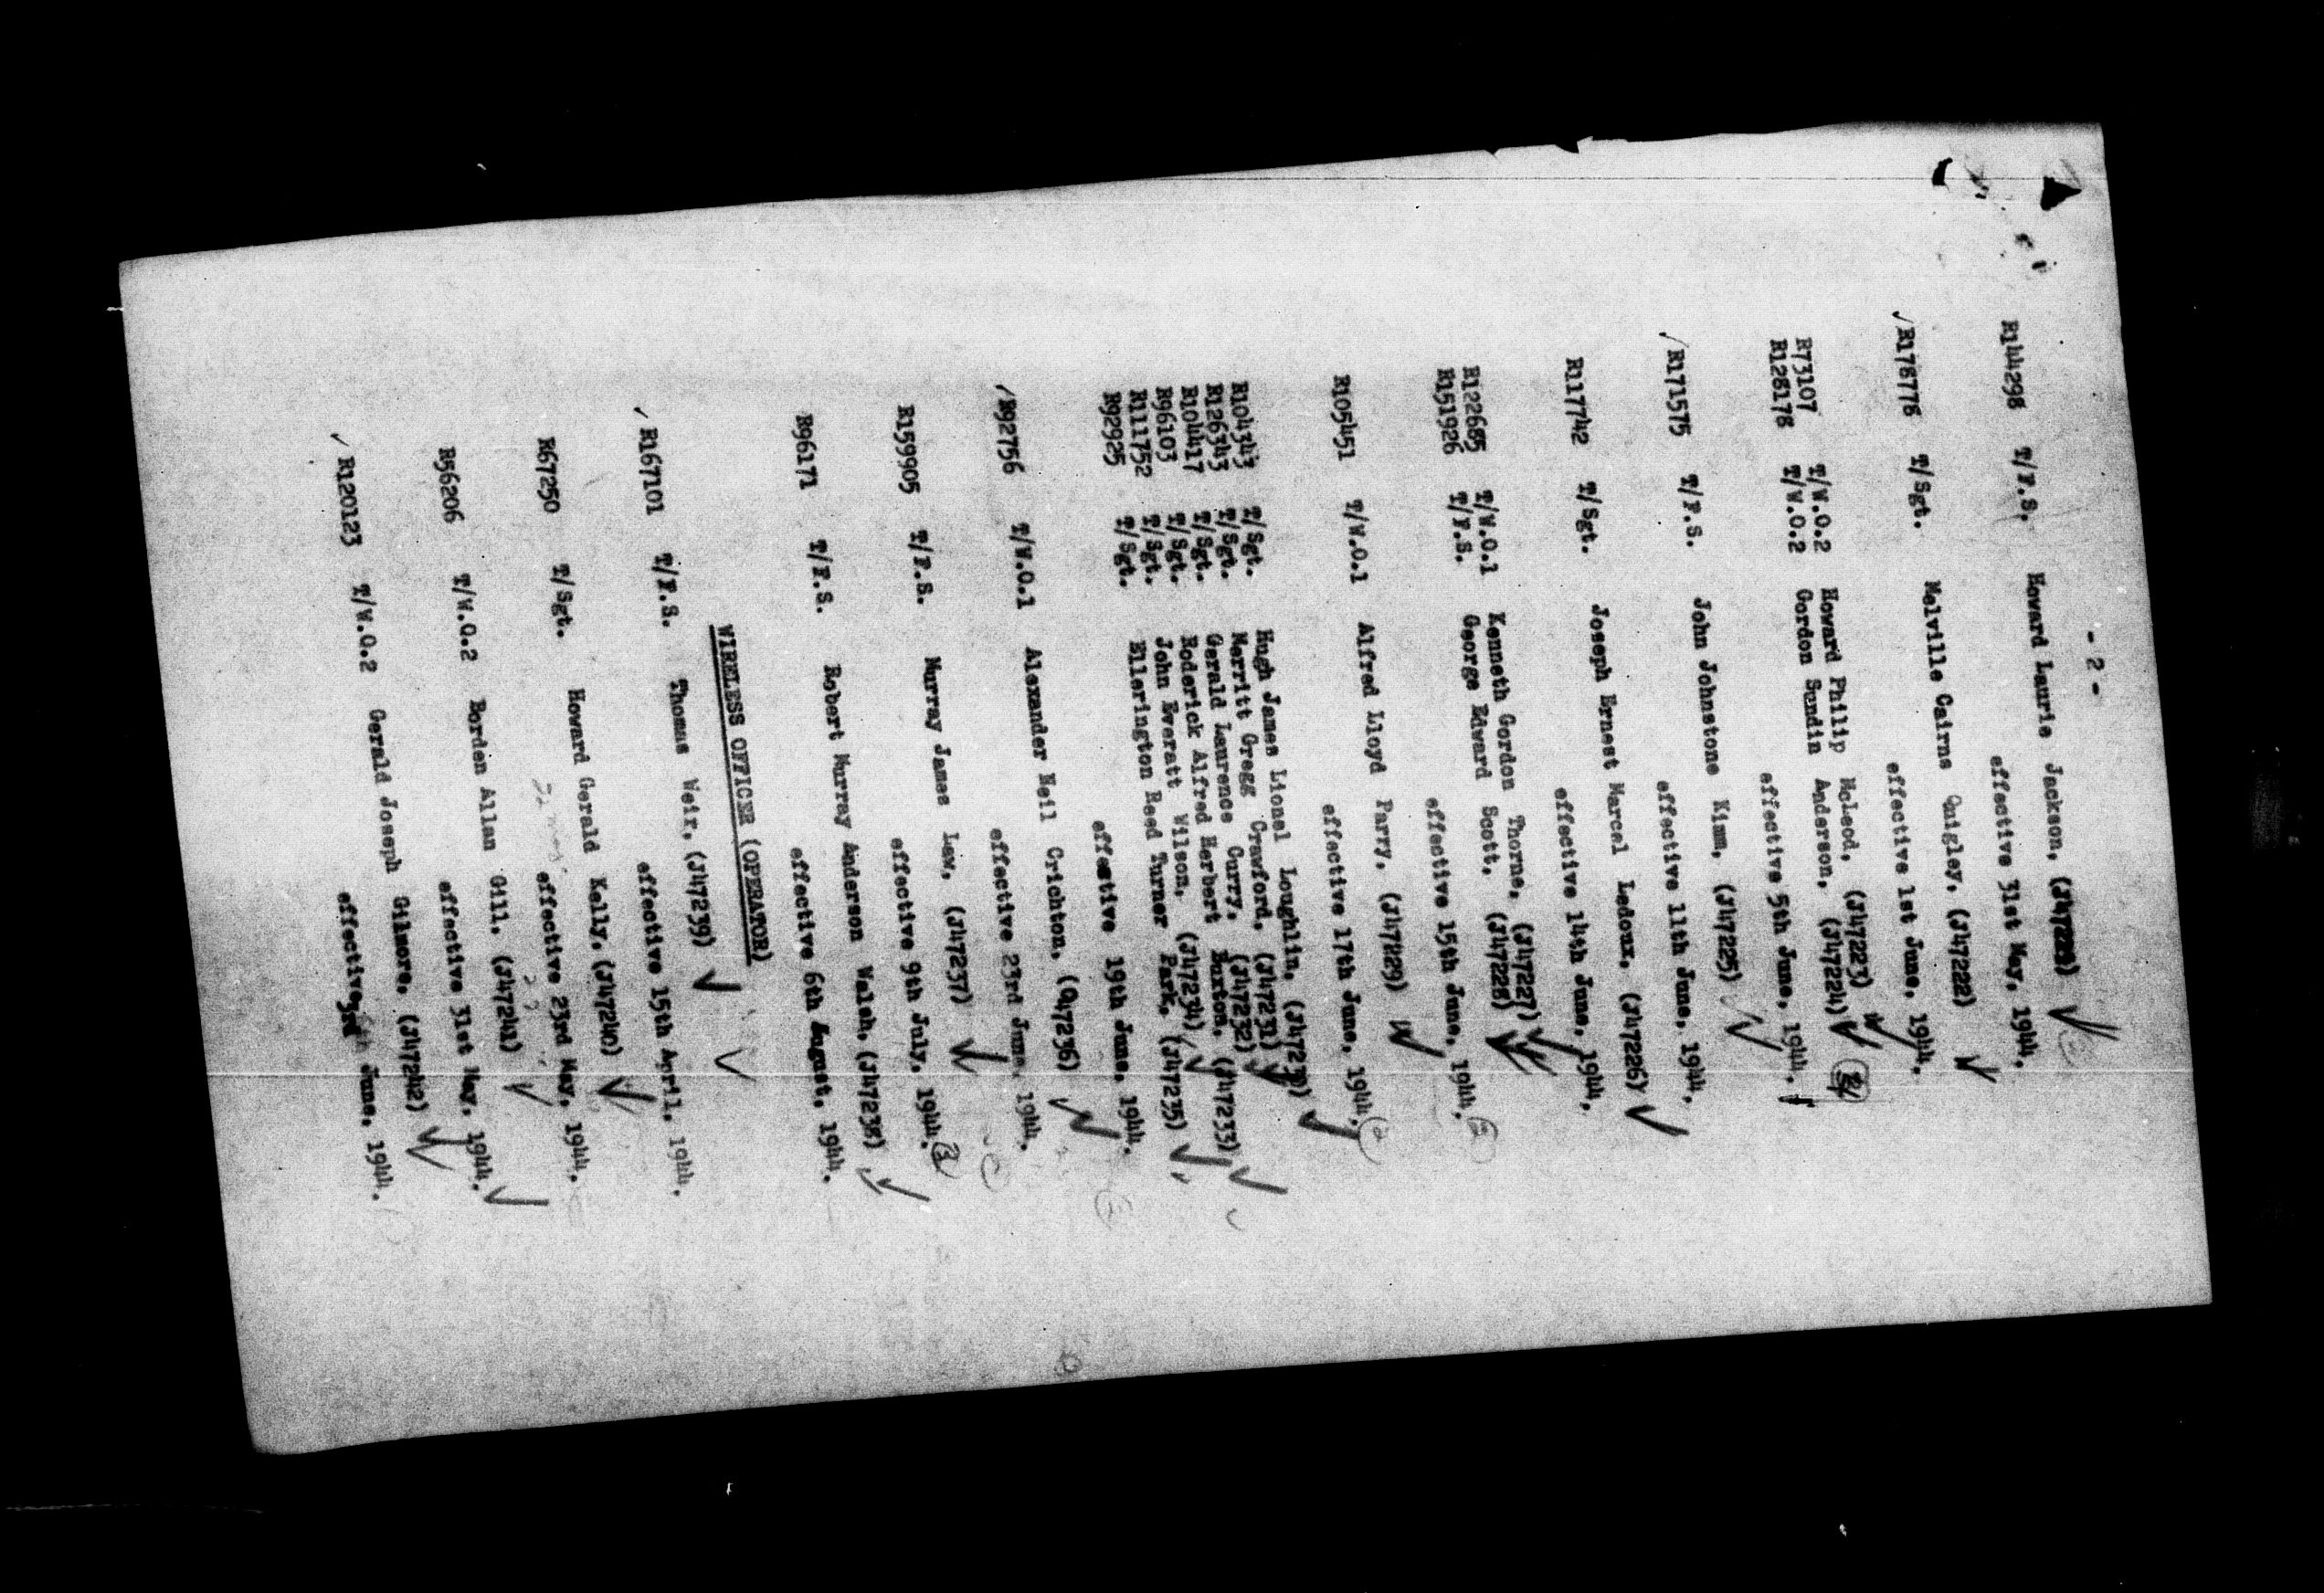 - 2 -
R144298 T/F.S. Howard Laurie Jackson,
effective 31st May, 1944.
R178778 T/Sgt. Melville Cairns Quigley, (J47222)
effective 1st June, 1944.
R73107 T/W.O.2 Howard Philip McLeod, (J47223)
R128178 T/W.O.2 Gordon Sundin Anderson, (J47224)
effective 5th June, 1944.
R171575 T/F.S. John Johnstone Kimm, (J47225)
effective 11th June, 1944.
R117742 T/Sgt. Joseph Ernest Marcel Ledoux, (J47226)
effective 14th June, 1944.
R122685 T/W.O.1 Kenneth Gordon Thorne, (J47227)
R151926 T/F.S. George Edward Scott, (J47228)
effective 15th June, 1944.
R105451 T/W.O.1 Alfred Lloyd Parry, (J47229)
effective 17th June, 1944.
R104343 T/Sgt. Hugh James Lionel Loughlin, (J47230)
R126343 T/Sgt. Merritt Gregg Crawford, (J47231)
R104417 T/Sgt. Gerald Laurence Curry, (J47232)
R96103 T/Sgt. Roderick Alfred Herbert Burton, (J47233)
R111752 T/Sgt. John Everatt Wilson, (J47234)
R92925 T/Sgt. Ellerington Reed Turner Park, (J47235)
effective 19th June, 1944.
R92756 T/W.O.1 Alexander Neil Crichton, (J47236)
effective 23rd June, 1944.
R159905 T/F.S. Murray James Law, (J47237)
effective 9th July, 1944.
R96171 T/F.S. Robert Murray Anderson Walsh, (J47238)
effective 6th August, 1944.
WIRELESS OFFICER (OPERATOR)
R167101 T/F.S. Thomas Weir, (J47239)
effective 15th April, 1944.
R67250 T/Sgt. Howard Gerald Kelly, (J47240)
effective 23rd May, 1944.
R56206 T/W.O.2 Borden Allan Gill, (J47241)
effective 31st May, 1944.
R120123 T/W.O.2 Gerald Joseph Gilmore, (J47242)
effective 3rd June, 1944.